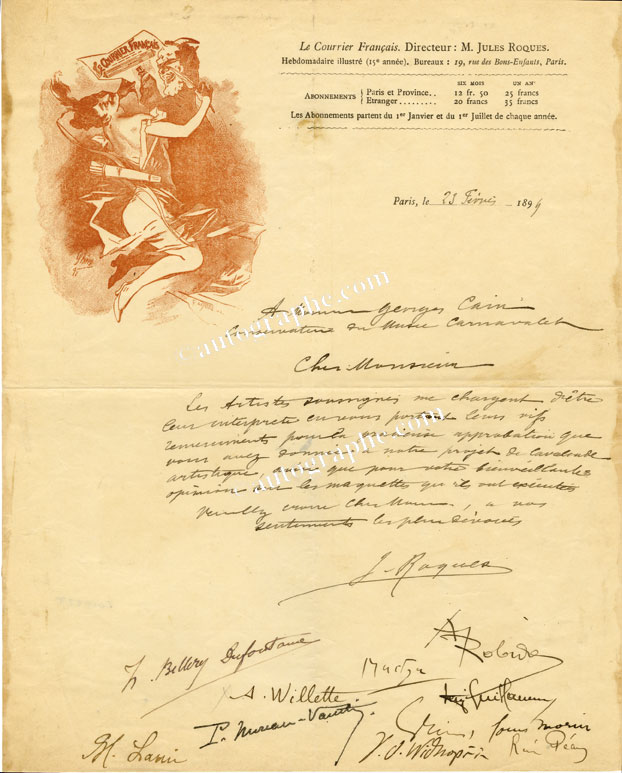 LE COURRIER FRANÇAIS
Le Courrier Français. Directeur : M. JULES ROQUES.
Hebdomadaire illustré (15e année). Bureaux : 19, rue des Bons-Enfants, Paris.
SIX MOIS UN AN
ABONNEMENTS { Paris et Province.. 12 fr. 50 25 francs
{ Etranger ......... 20 francs 35 francs
Les Abonnements partent du 1er Janvier et du 1er Juillet de chaque année.
Paris, le 23 189
A Georges Cain
Conservateur du Musée Carnavalet
Cher Monsieur
Les Artistes soussignés me chargent d'être
leur interprète en vous portant leurs vifs
remerciements pour la précieuse approbation que
vous avez donnée à notre projet de cavalcade
artistique, que pour votre bienveillante
opinion sur les maquettes qu'ils ont exécutées
Veuillez croire Cher à nos
sentiments les plus dévoués
J. Roques
A Robida
H. Billery Dufontaine
A. Willette.
P. Moreau-Vauthier
Louis Morin
©autographe.com
©autographe.com